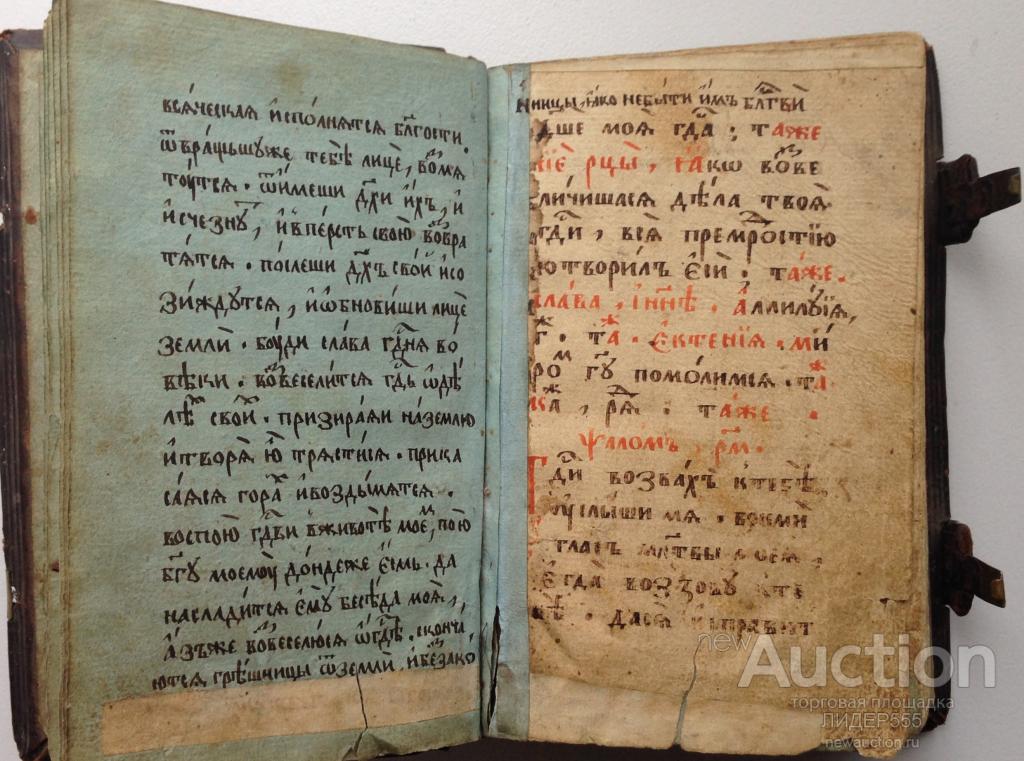 всѧ́ческаѧ и҆спо́лнѧтсѧ бл҃гости.
ѿвра́щьшуже тебѣ̀ лицѐ, возмѧ
тꙋтсѧ. ѿи́меши дꙋ́хи и҆́хъ, и҆
и҆счезнꙋ́т, и҆впе́рсть свою̀ возвра
тѧ́тсѧ. по́слеши дх҃ъ сво́й и҆со
зи́ждутсѧ, и҆ѡ҆бнови́ши лицѐ
землѝ. бꙋ́ди слава гдⷭ҇нѧ во
вѣ́ки. возвесели́тсѧ гдⷭ҇ь ѡ҆дѣ́
лѣⷯ свои́ⷯ. призира́ѧи на́землю
и҆творѧ̀ ю҆̀ трѧсти́сѧ. прика
са́ѧсѧ гора́ⷨ и҆воздымѧ́тсѧ.
воспою̀ гдⷭ҇ви вживотѣ̀ моеⷨ, пою̀
бг҃у моемꙋ̀ до́ндеже є҆́смь. да
наслади́тсѧ є҆мꙋ̀ бесѣ́да моѧ̀,
а҆́зъже возвеселю́сѧ ѡ҆гдⷭ҇ѣ. сконча́
ютсѧ грѣ́шницы ѿземлѝ, и҆безако
ницы, ꙗ҆́ко небы́ти и҆́мъ бл҃гви̇̀
дше моѧ̀ гдⷭ҇а; та́же
рцы̀, ꙗ҆́кѡ возве
личишасѧ дѣла̀ твоѧ̀
гдⷭ҇и, всѧ̀ премрⷣостїю
сотвори́лъ є҆сѝ. та́же.
слава, и҆ нн҃ѣ. а҆ллилꙋ́їѧ,
г҃. таⷤ. є҆ктенїѧ̀. ми́
роⷨ гдⷭ҇у помо́лимсѧ. таⷤ
та́же.
ѱало́мъ, рм҃.
гдⷭ҇и воззва́хъ ктебѣ̀,
ᲂу҆слы́ши мѧ. вонмѝ
гла́съ мл҃твы моеѧ̀,
є҆гда̀ воззовꙋ̀ кте
бѣ̀. да́сѧ и҆спра́вит
newAuction
торговая площадка
ЛИДЕР555
newauction.ru